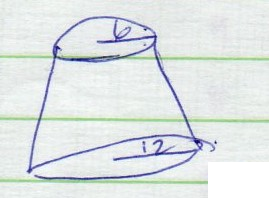 6
12